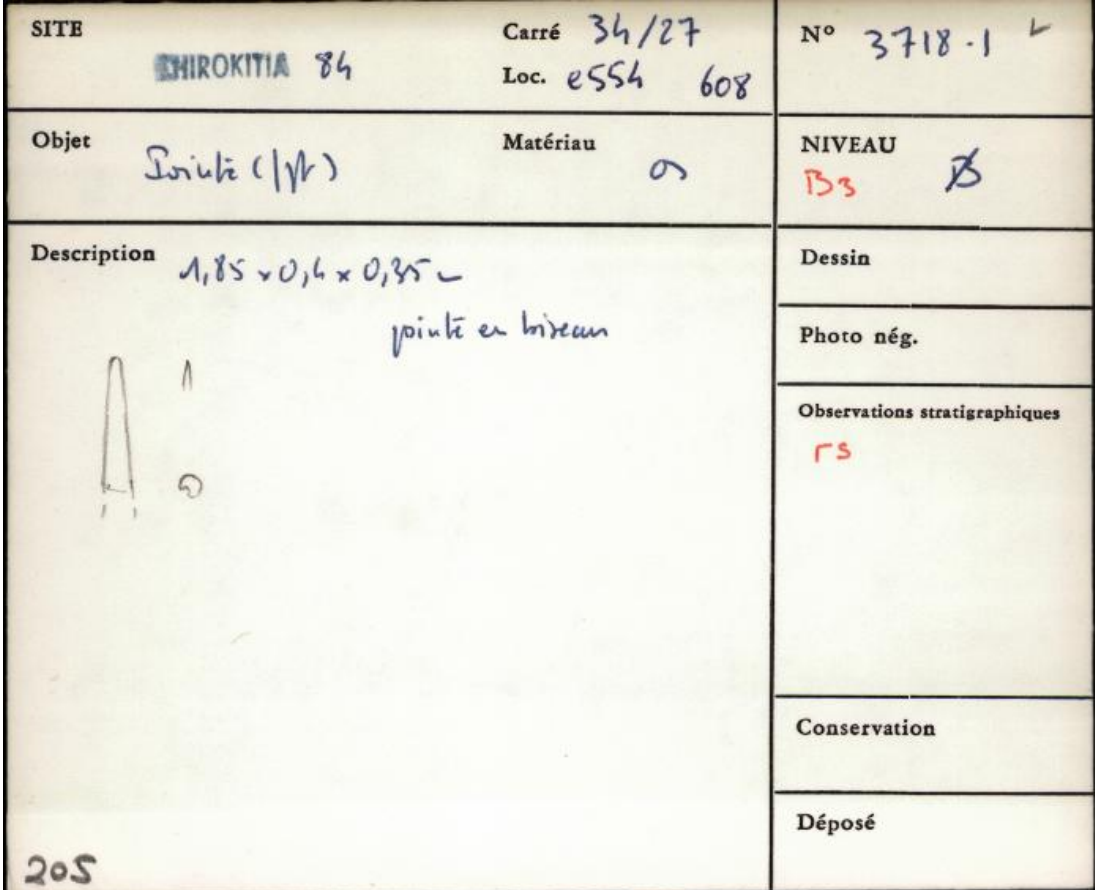 SITE
KHIROKITIA 84
Carré 34/27
Loc. e554 608
N° 3718.1
Objet
Pointe (fgt)
Matériau
os
NIVEAU
B3 B
Description
1,85 x 0,4 x 0,35
pointe en biseau
Dessin
Photo nég.
Observations stratigraphiques
rs
Conservation
Déposé
205